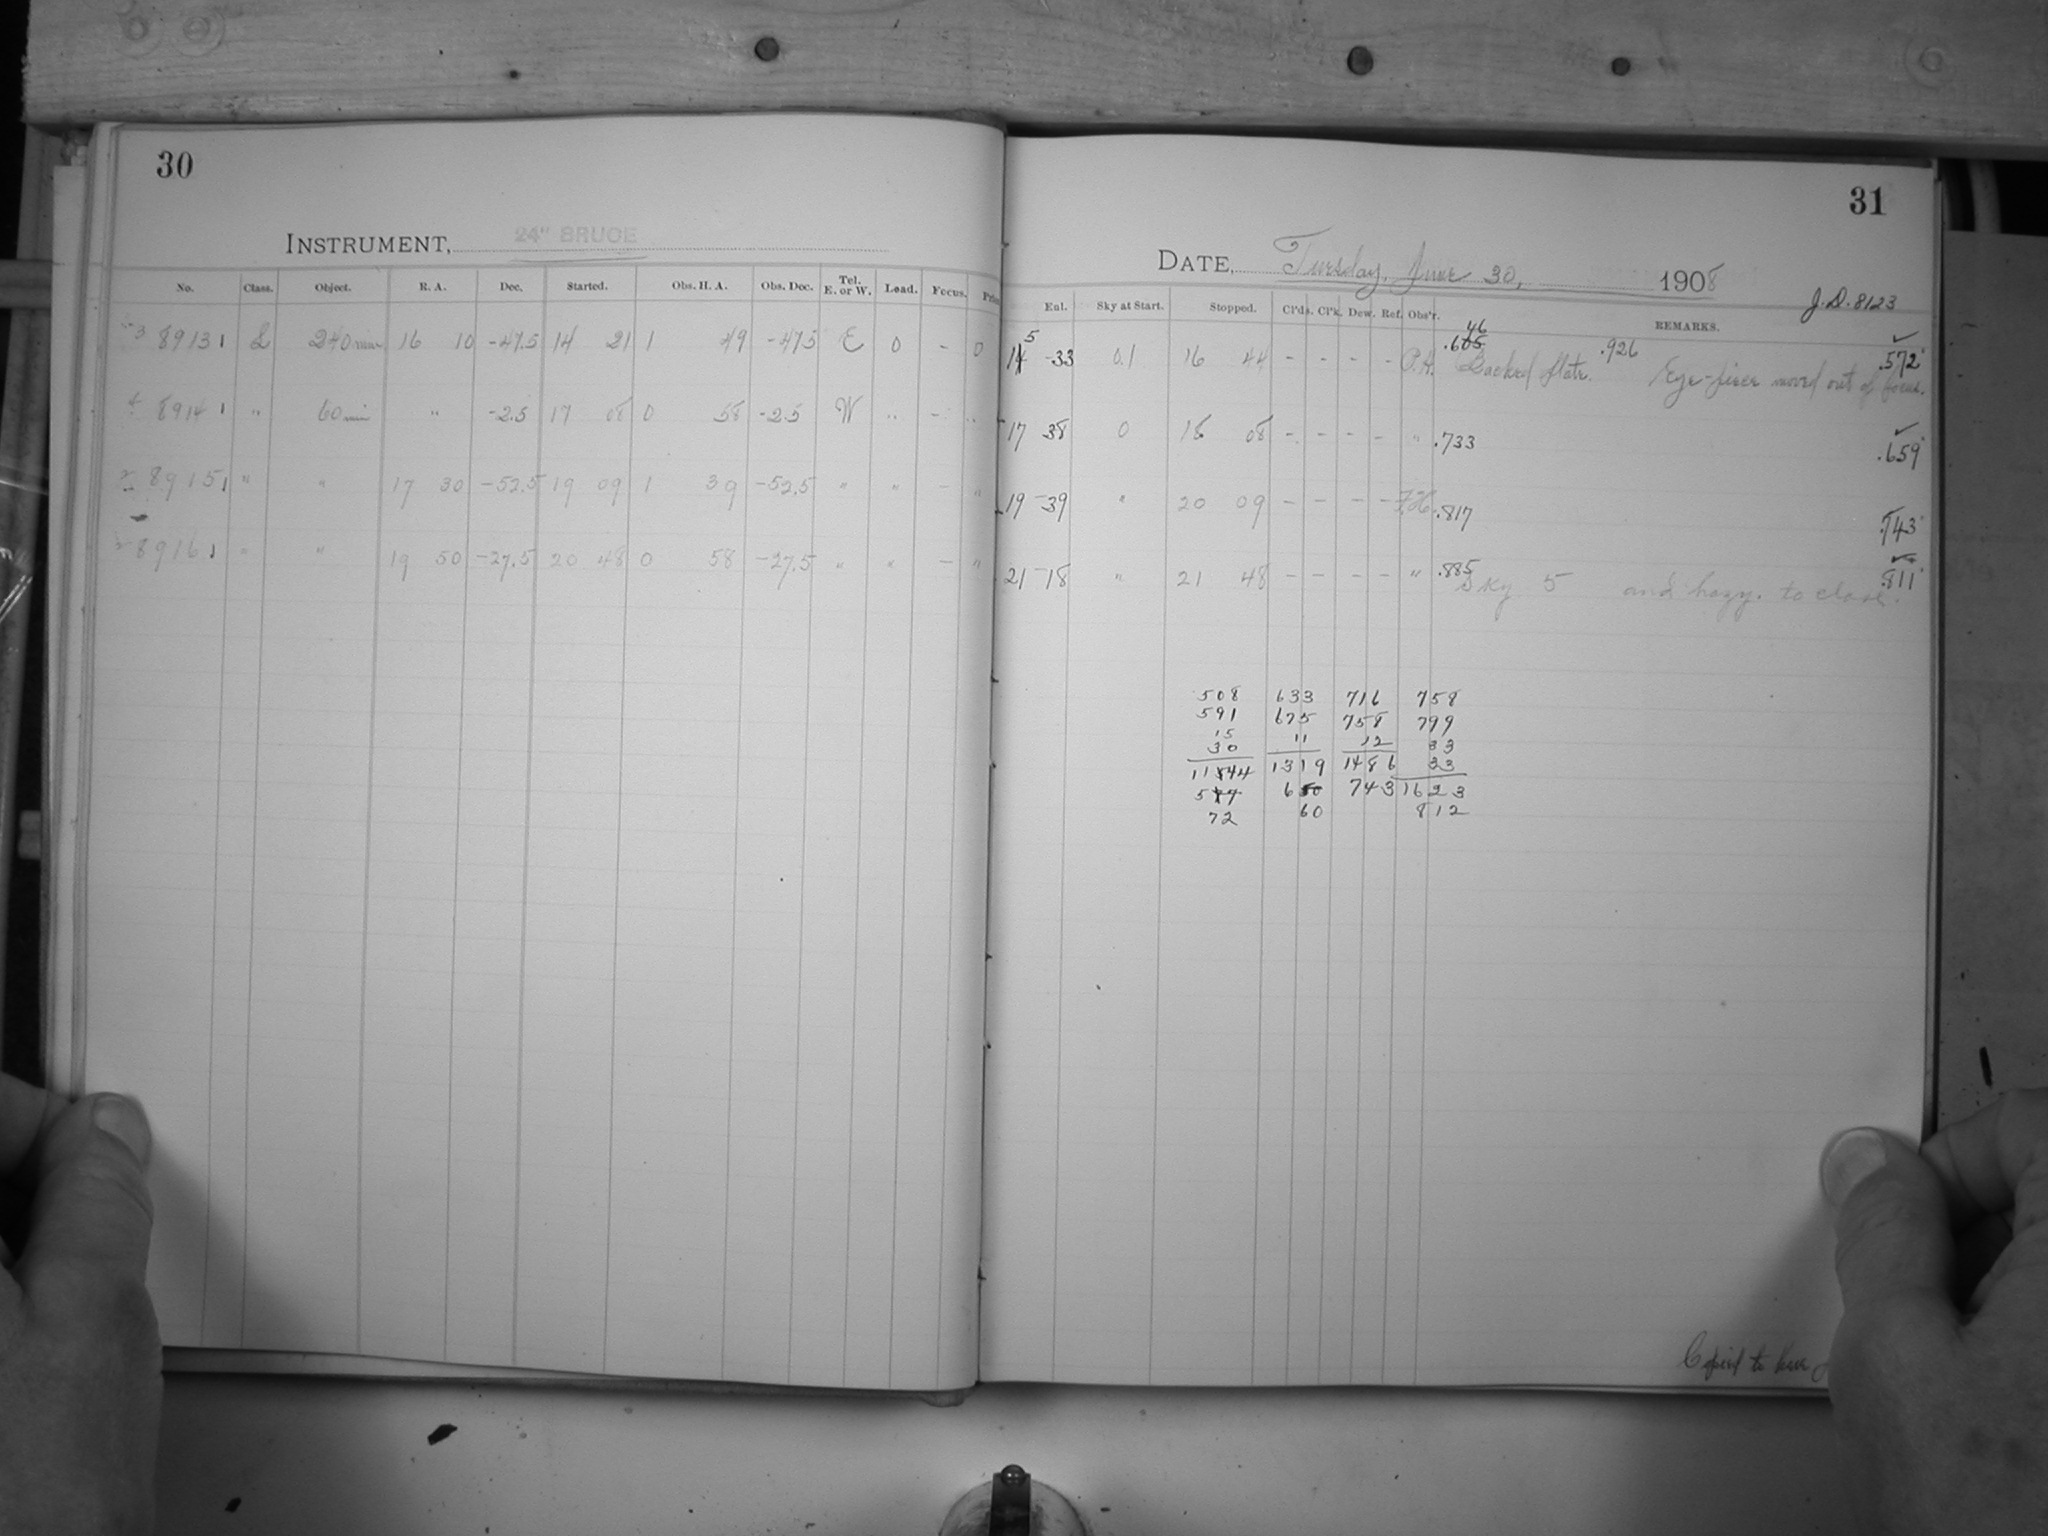 30
INSTRUMENT, 24" BRUCE
No. Class. Object. R. A. Dec. Started. Obs. H. A. Obs. Dec. Tel. E. or W. Lead. Focus.
3 8913 1 L 240 min 16 10 -47.5 14 21 1 49 -47.5 E 0 - 0
4 8914 1 " 60 min " -2.5 17 08 0 58 -2.5 W " - "
2 8915 1 " " 17 30 -52.5 19 09 1 39 -52.5 " " - "
8916 1 " " 19 50 -27.5 20 48 0 58 -27.5 " " - "
31
DATE, Tuesday, June 30, 1908
J.D. 8123
Eul. Sky at Start. Stopped. Cl'ds. Cl'k. Dew. Ref. Obs'r. REMARKS.
15 -33 0.1 16 44 - - - - P.H. .646 Backed plate. .926 Eye-piece moved out of focus. .572
17 38 0 18 08 - - - - " .733 .659
19 -39 " 20 09 - - - - F.H. .817 .743
21 -18 " 21 48 - - - - " .885 Sky 5 and hazy. to close. .811
508 633 716 758
591 675 758 799
15 11 12 33
30 1319 1486 33
1144 60 743 1623
572 812
Copied to here